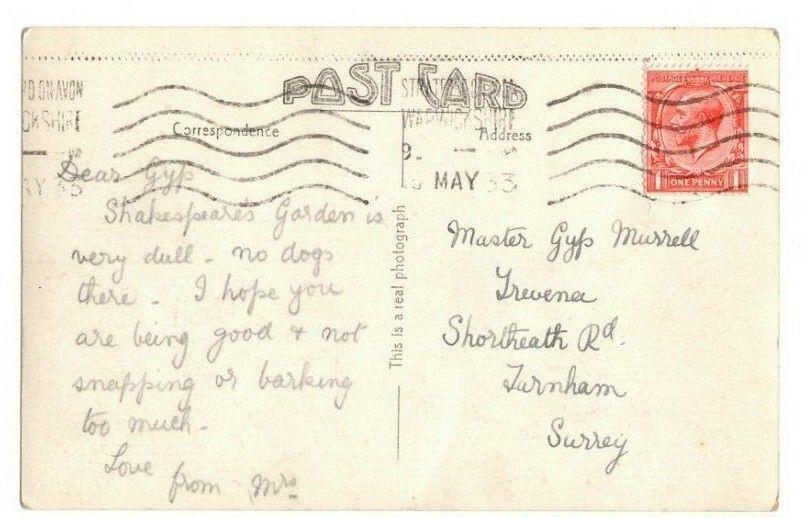 POST CARD
D ON AVON
CKSHIRE
AY 33
WARWICKSHIRE
9-
MAY 33
Correspondence
Address
ONE PENNY
Dear Gyp
Shakespeare's Garden is
very dull - no dogs
there - I hope you
are being good & not
snapping or barking
too much -
Love
from Mrs
This is a real photograph
Master Gyp Murrell
Trevena
Shortheath Rd.
Farnham
Surrey